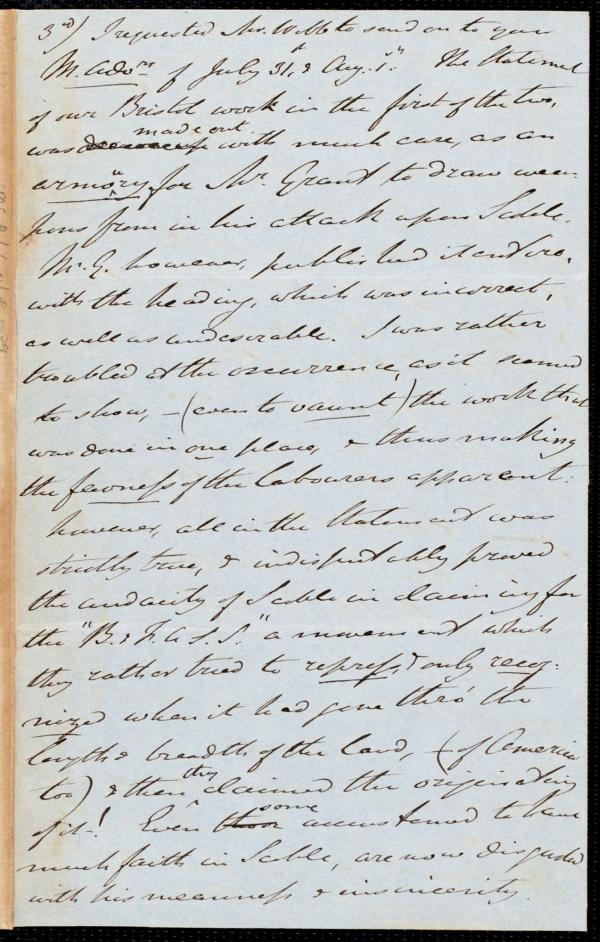 3rd) I requested Mr. Webb to send on to you
M. Advrs of July 31st, & Aug. 1st. The Statement
of our Bristol work in the first of the two,
was made out with much care, as an
armory for Mr. Grant to draw wea-
pons from in his attack upon Soble.
Mr. G. however, published it entire,
with the heading, which was incorrect,
as well as undesirable. I was rather
troubled at the occurrence, as it seemed
to show, – (even to vaunt) the work that
was done in one place, & thus making
the fewness of the labourers apparent:
however, all in the Statement was
strictly true, & indisputably proved
the audacity of Soble in claiming for
the "B. & F. A. S. S." a movement which
they rather tried to repress, & only recog-
nized when it had gone thro' the
length & breadth of the land, – (of America
too) & then they claimed the originating
of it! Even some accustomed to have
much faith in Soble, are now disgusted
with his meanness & insincerity.